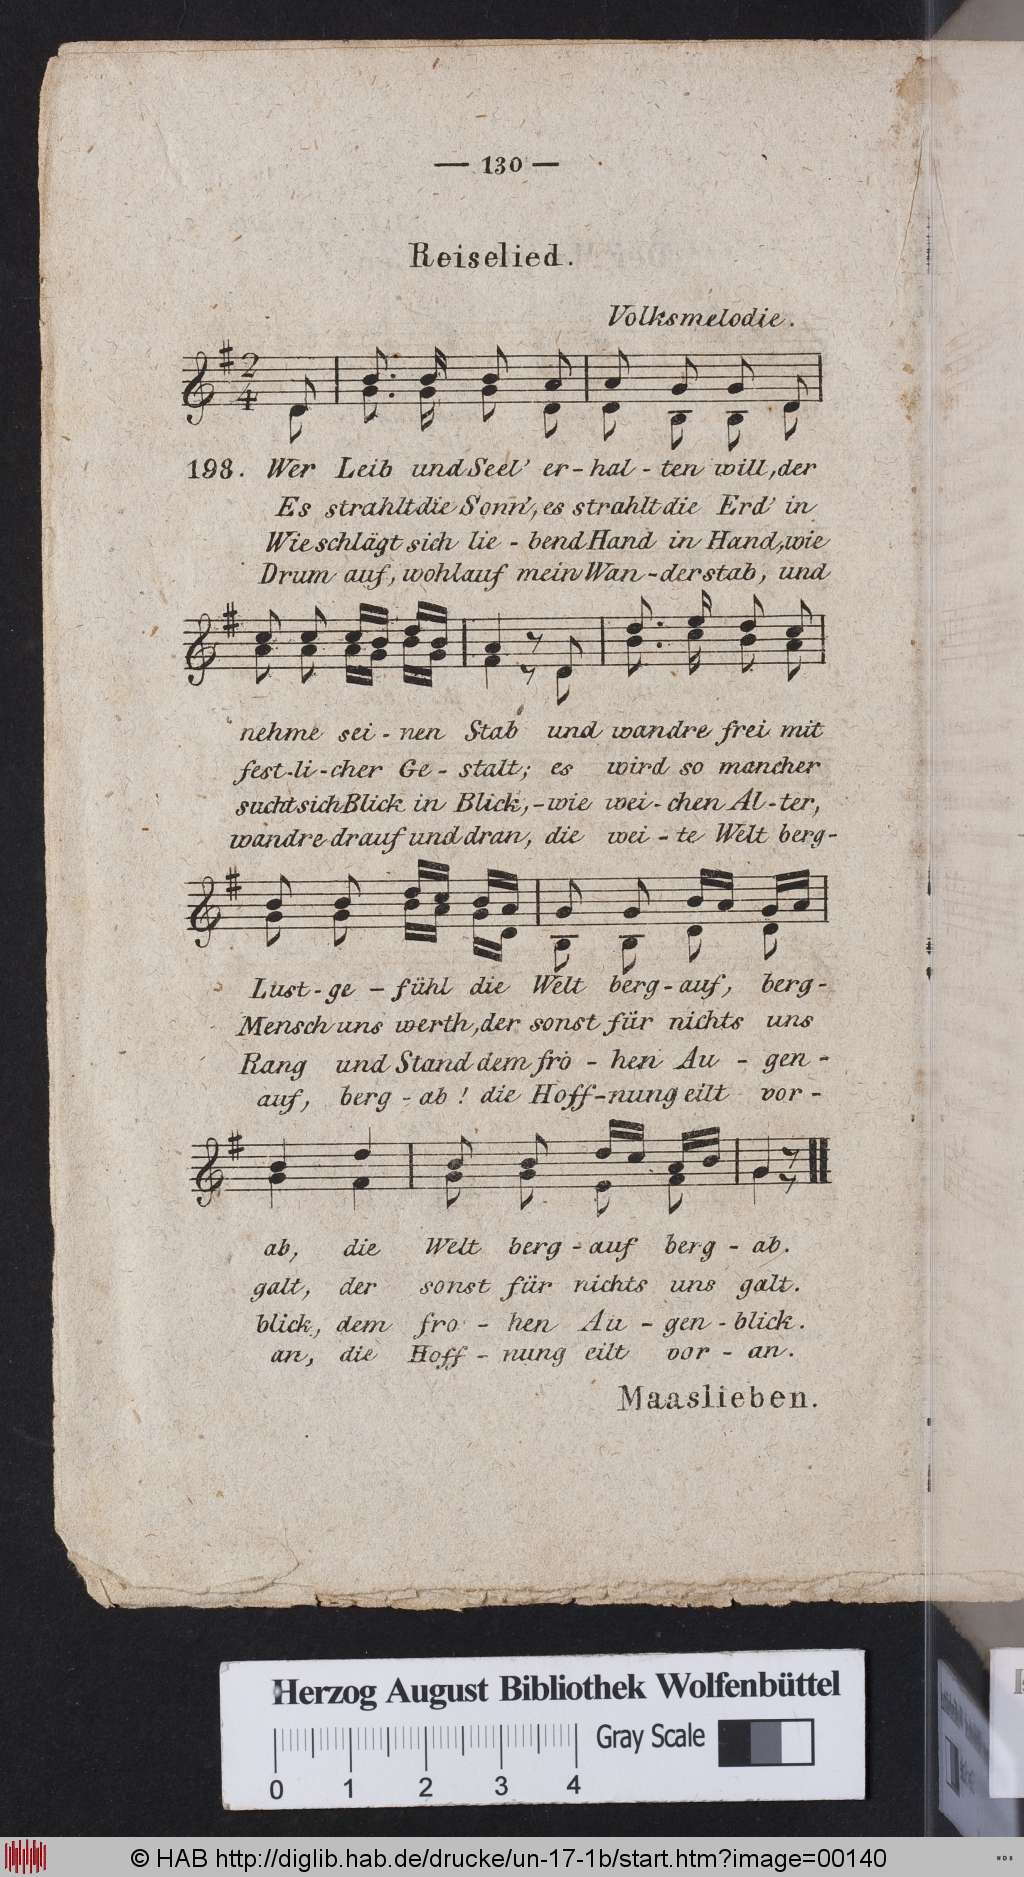 — 130 —
Reiselied.
Volksmelodie.
2
4
198. Wer Leib und Seel' er-hal-ten will, der
Es strahlt die Sonn', es strahlt die Erd' in
Wie schlägt sich lie-bend Hand in Hand, wie
Drum auf, wohlauf mein Wan-derstab, und
nehme sei-nen Stab und wandre frei mit
fest-li-cher Ge-stalt; es wird so mancher
sucht sich Blick in Blick,-wie wei-chen Al-ter,
wandre drauf und dran, die wei-te Welt berg-
Lust-ge-fühl die Welt berg-auf, berg-
Mensch uns werth, der sonst für nichts uns
Rang und Stand dem fro-hen Au-gen-
auf, berg-ab! die Hoff-nung eilt vor-
ab, die Welt berg-auf berg-ab.
galt, der sonst für nichts uns galt.
blick, dem fro-hen Au-gen-blick.
an, die Hoff-nung eilt vor-an.
Maaslieben.
Herzog August Bibliothek Wolfenbüttel
Gray Scale
0 1 2 3 4
© HAB http://diglib.hab.de/drucke/un-17-1b/start.htm?image=00140